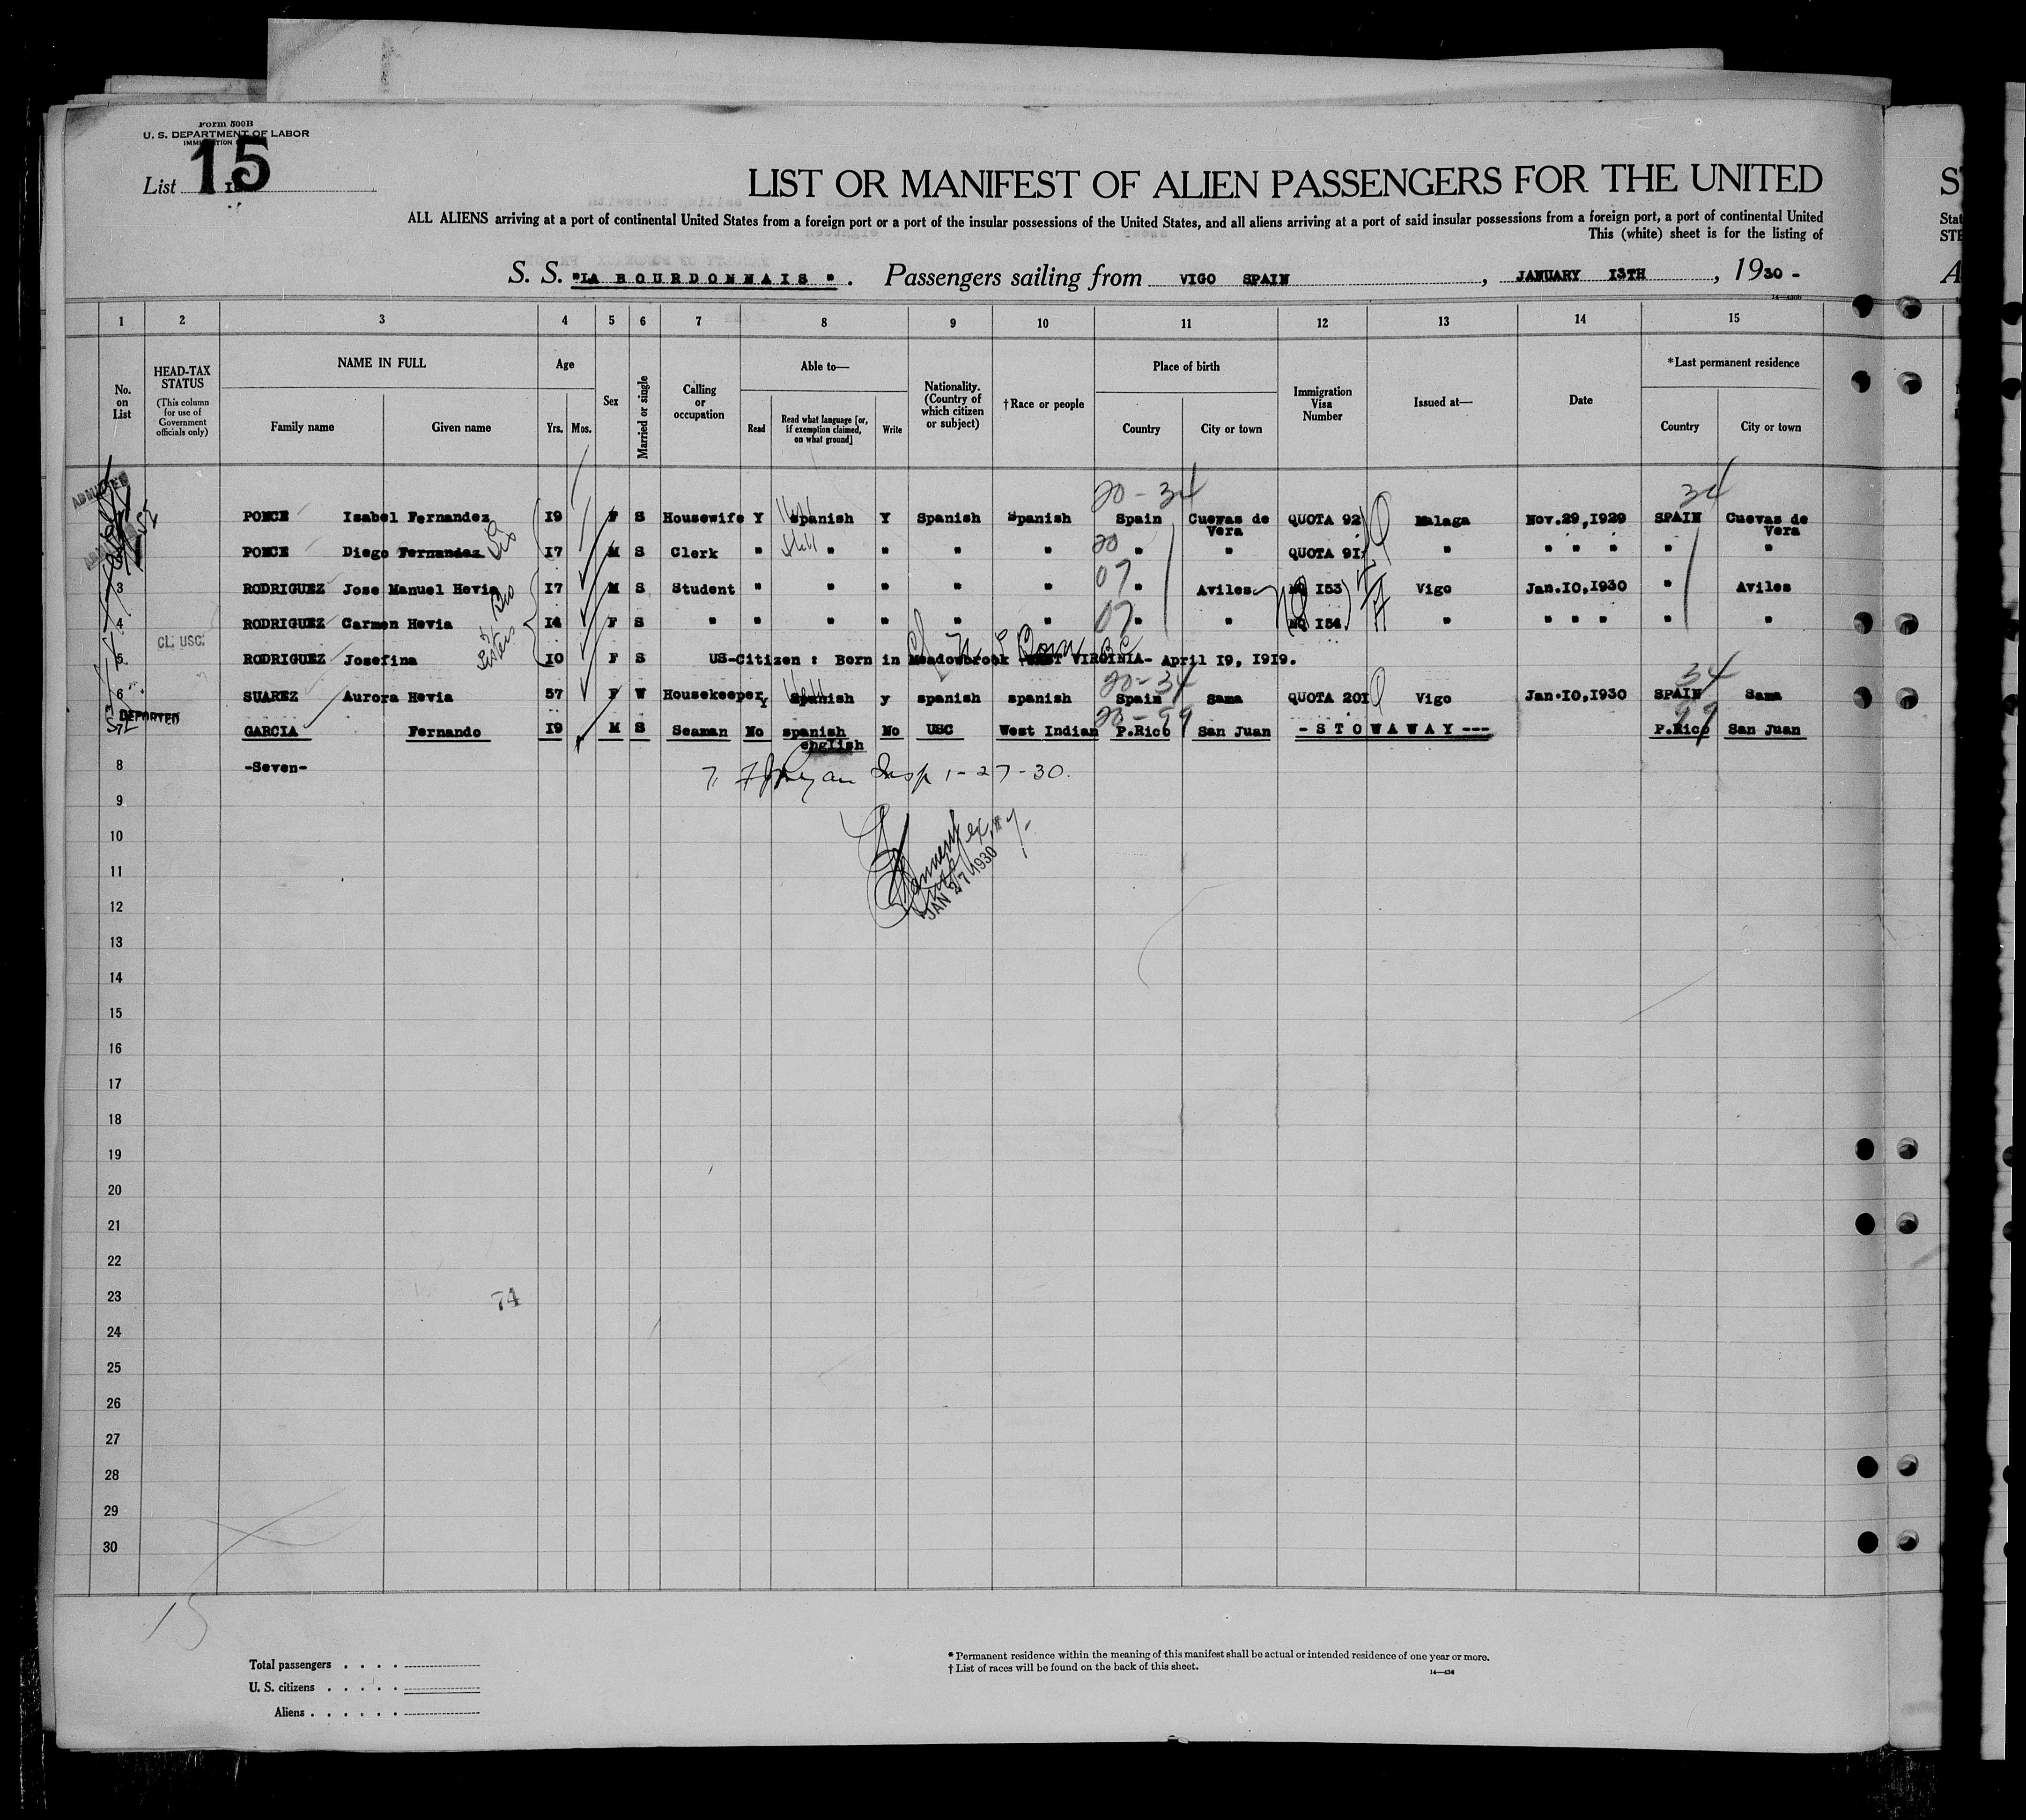 Form 500B
U. S. DEPARTMENT OF LABOR
List 15
LIST OR MANIFEST OF ALIEN PASSENGERS FOR THE UNITED
ALL ALIENS arriving at a port of continental United States from a foreign port or a port of the insular possessions of the United States, and all aliens arriving at a port of said insular possessions from a foreign port, a port of continental United
This (white) sheet is for the listing of
S. S. "LA BOURDONNAIS". Passengers sailing from VIGO SPAIN, JANUARY 13TH, 1930 -
1 2 3 4 5 6 7 8 9 10 11 12 13 14 15
No. on List
HEAD-TAX STATUS (This column for use of Government officials only)
NAME IN FULL
Family name Given name
Age
Yrs. Mos.
Sex
Married or single
Calling or occupation
Able to—
Read
Read what language [or, if exemption claimed, on what ground]
Write
Nationality. (Country of which citizen or subject)
†Race or people
Place of birth
Country City or town
Immigration Visa Number
Issued at—
Date
*Last permanent residence
Country City or town
20 - 34 34
PONCE Isabel Fernandez 19 F S Housewife Y Spanish Y Spanish Spanish Spain Cuevas de Vera QUOTA 92 Malaga Nov.29,1929 SPAIN Cuevas de Vera
PONCE Diego Fernandez 17 M S Clerk " " " " " 20 " " QUOTA 91 " " " " " "
3 RODRIGUEZ Jose Manuel Hevia 17 M S Student " " " " " 07 " Aviles 153 Vigo Jan.10,1930 " Aviles
4 RODRIGUEZ Carmen Hevia 14 F S " " " " " " 07 " " 154 " " " " " "
CL. USC.
5 RODRIGUEZ Josefina 10 F S US-Citizen : Born in Meadowbrook WEST VIRGINIA- April 19, 1919.
20-34 34
6 SUAREZ Aurora Hevia 57 F W Housekeeper Y Spanish y spanish spanish Spain Sama QUOTA 201 Vigo Jan.10,1930 SPAIN Sama
DEPORTED
GARCIA Fernando 19 M S Seaman No spanish english No USC West Indian P.Rico San Juan - S T O W A W A Y --- P.Rico San Juan
8 -Seven-
Insp 1-27-30.
9
10
11
JAN 27 1930
12
13
14
15
16
17
18
19
20
21
22
23
74
24
25
26
27
28
29
30
15
Total passengers
U. S. citizens
Aliens
* Permanent residence within the meaning of this manifest shall be actual or intended residence of one year or more.
† List of races will be found on the back of this sheet.
14—436